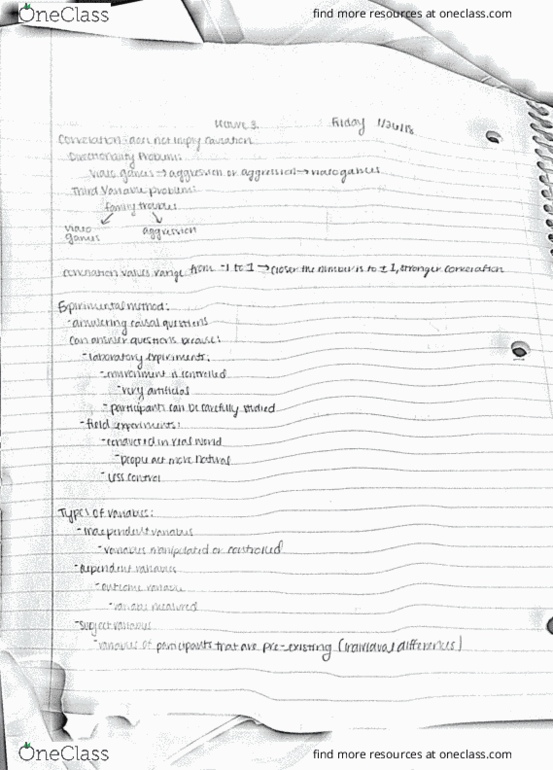 OneClass
find more resources at oneclass.com
Lecture 3. Friday 1/26/18
Correlation does not imply causation
Directionality Problem:
video games → aggression or aggression → video games
Third Variable problem:
family troubles
video games aggression
correlation values range from -1 to 1 → closer the number is to ± 1, stronger correlation
Experimental method:
- answering causal questions
can answer questions because:
- laboratory experiments:
- environment is controlled
- very artificial
- participants can be carefully studied
- field experiments:
- conducted in real world
- people act more natural
- less control
Types of variables:
- independent variables
- variables manipulated or controlled
- dependent variables
- outcome variable
- variable measured
- subject variables
- variables of participants that are pre-existing (individual differences)
OneClass
find more resources at oneclass.com